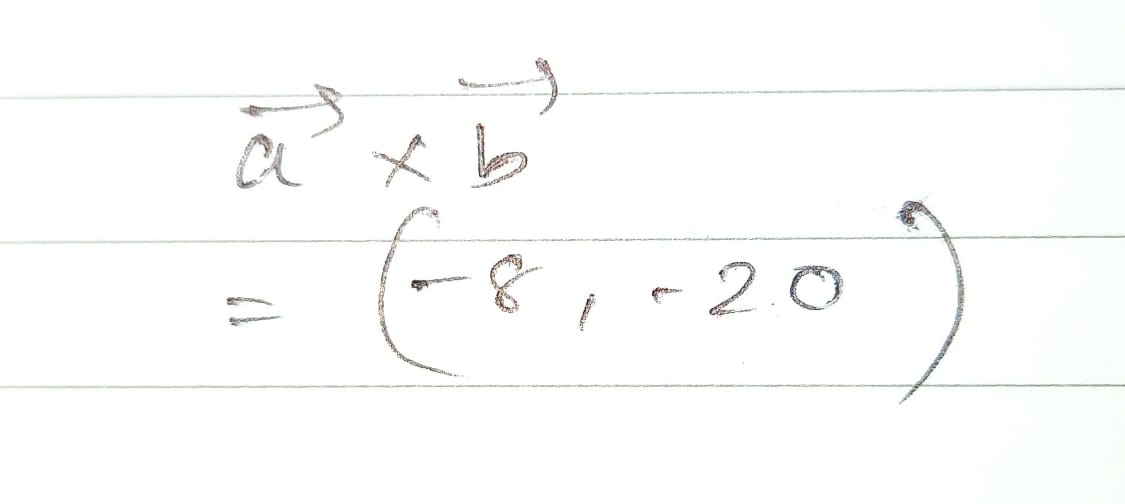 a⃗ × b⃗
= (-8, -20)